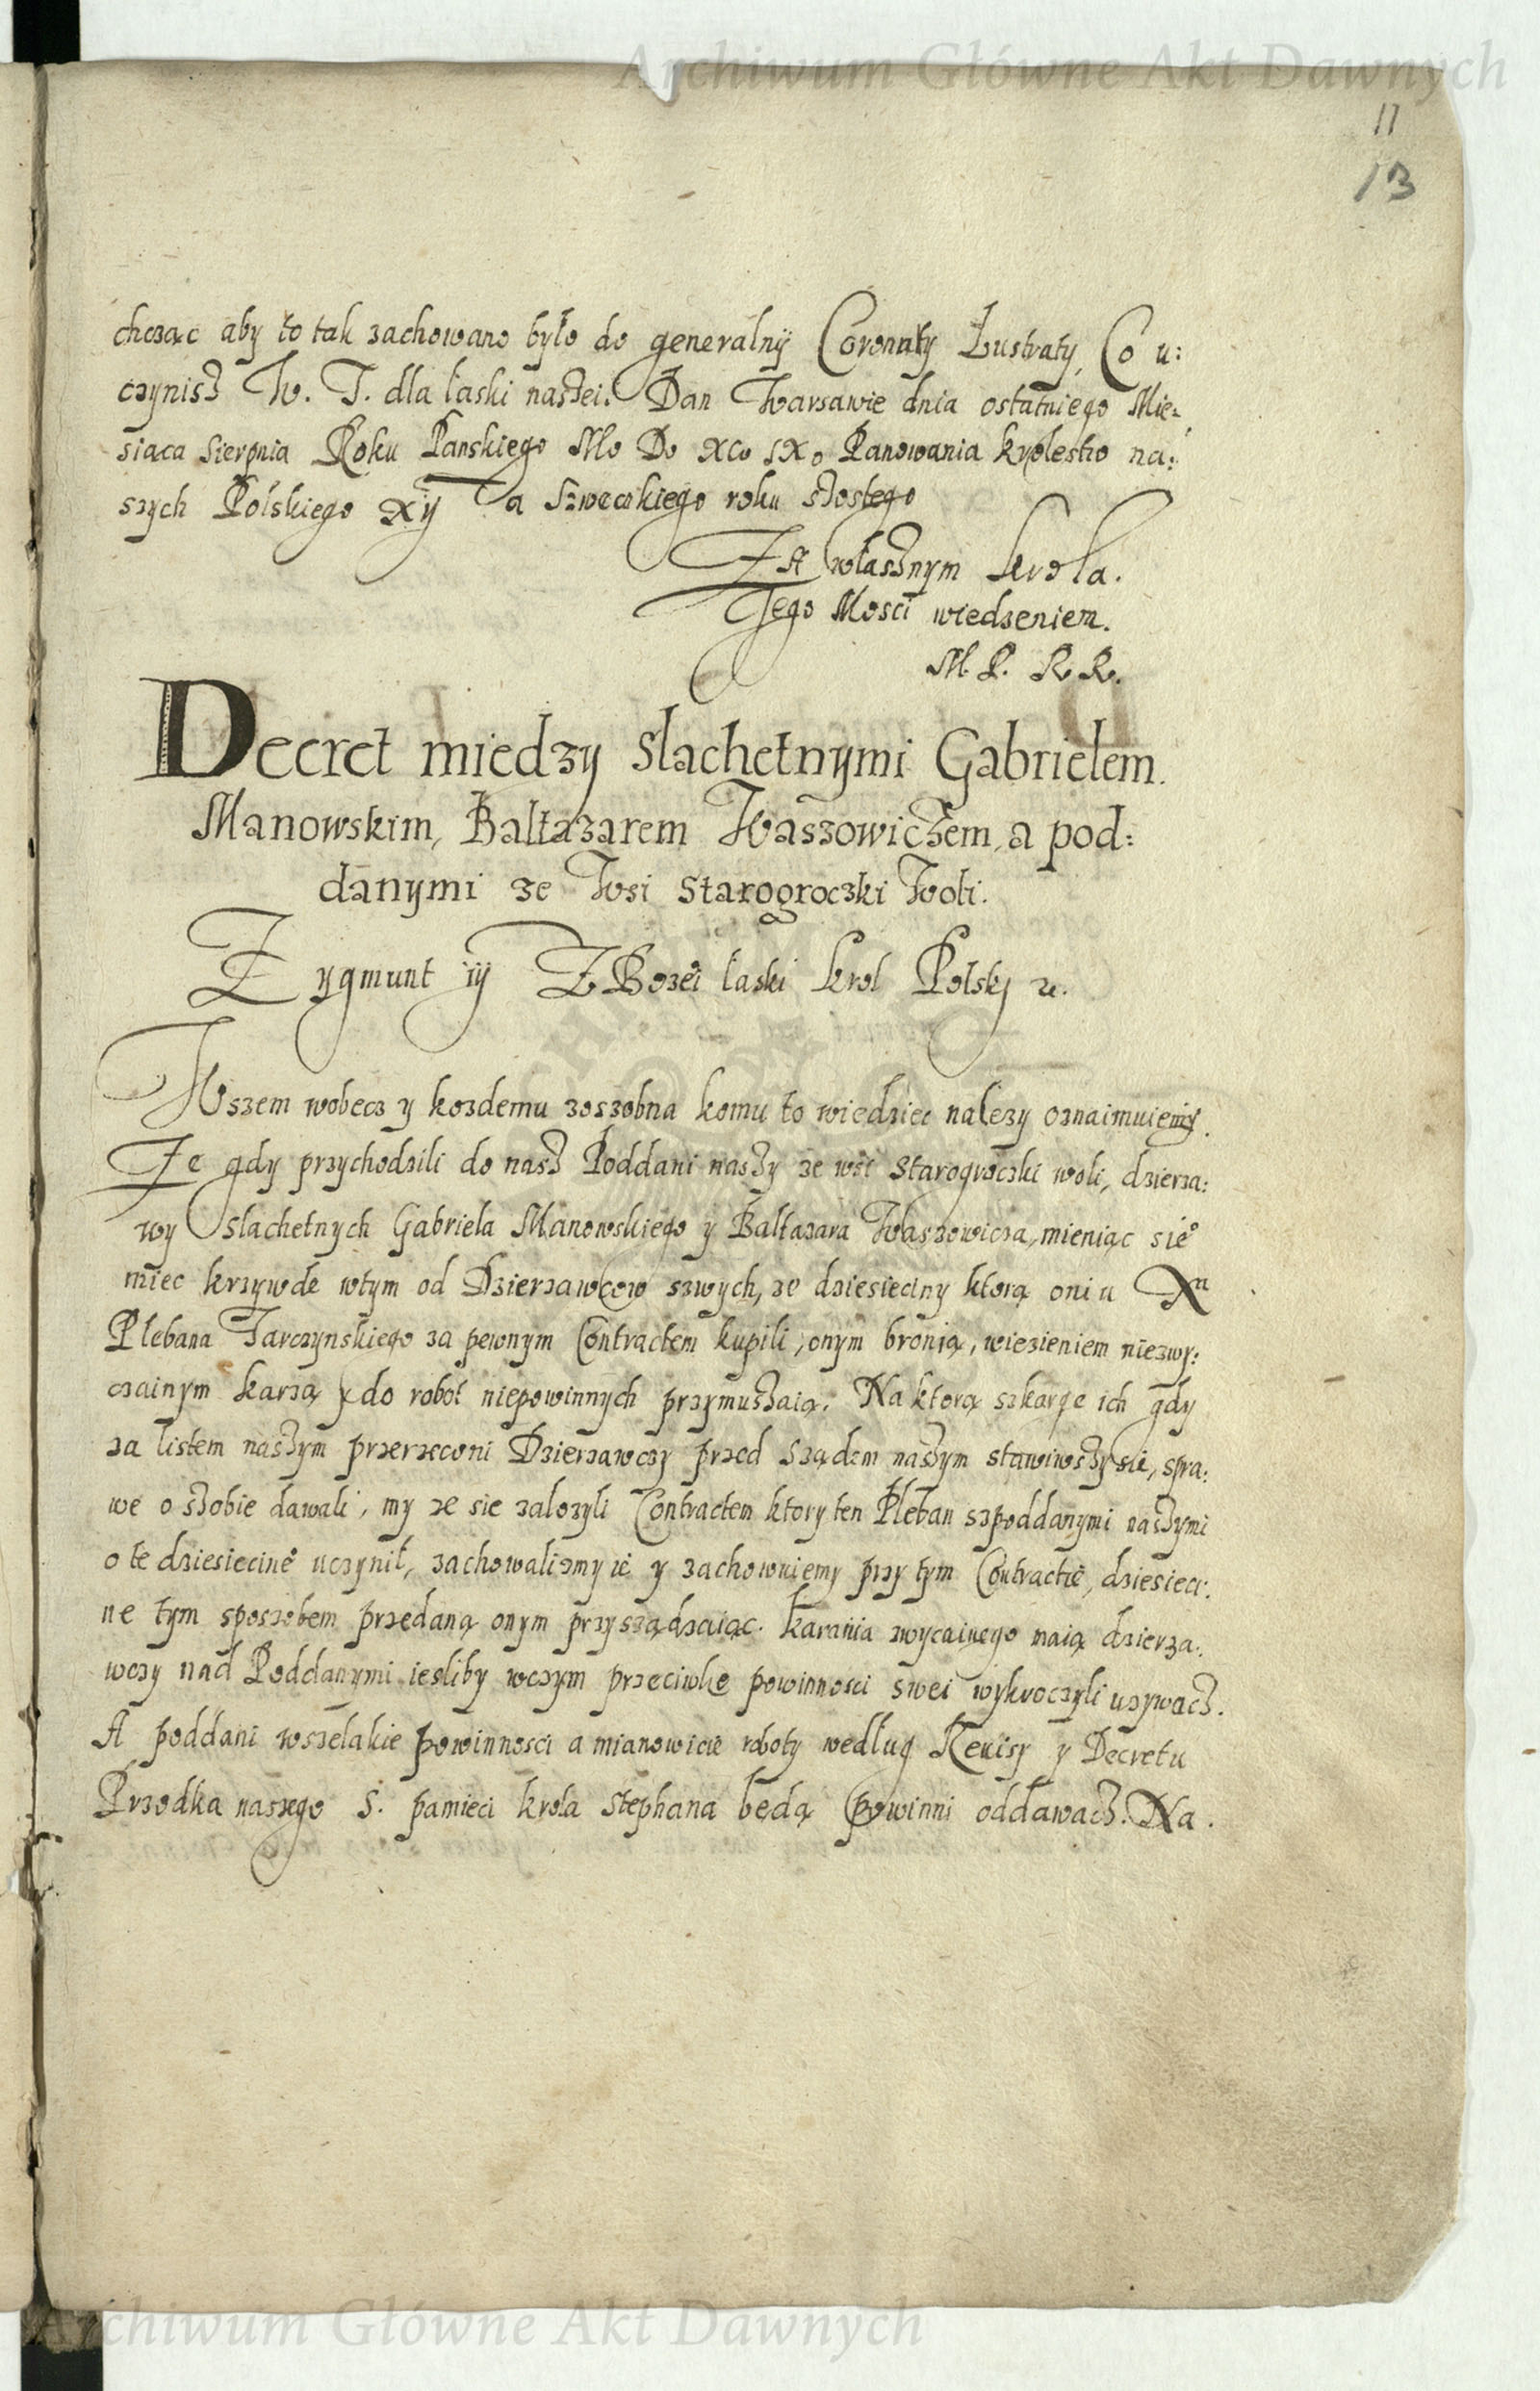 Archiwum Główne Akt Dawnych
11
13
chcząc aby to tak zachowano było do generalny Coronaty Lustraty, Co u:
czynisz W. T. dla łaski naszei. Dan Warsawie dnia ostatniego Mie:
siąca Sierpnia Roku Panskiego Mo Do XCo IXo Panowania krolestw na:
szych Polskiego XIJ a Szweckiego roku szostego
Za własznym krola.
Jego Mosci wiedzeniem.
M. P. R R.
Decret miedzy slachetnymi Gabrielem.
Manowskim, Baltazarem Waszowiczem, a pod:
danymi ze Wsi Starogroczki Woli.
Zygmunt iij Z Bozei łaski krol Polsky
Wszem wobecz y kozdemu zoszobna komu to wiedziec nalezy oznaimuiemy.
Ze gdy przychodzili do nasz Poddani naszy ze wsi Starogroczki woli, dzierza:
wy Slachetnych Gabriela Manowskiego y Baltazara Waszowicza, mieniąc sie
miec krzywde wtym od Dzierzawcow szwych, ze dziesieciny ktorą oni u Xn
Plebana Tarczynskiego za pewnym Contractem kupili, onym bronią, wiezieniem niezwy:
czainym karzą y do robot niepowinnych przymuszaią. Na ktorą szkarge ich gdy
za listem naszym przerzeconi Dzierzawczy przed Sządem naszym stawiwszy sie, spra:
we o szobie dawali, my ze sie zalozyli Contractem ktory ten Pleban szpoddanymi naszymi
o te dziesiecine uczynil, zachowalismy ie y zachowuiemy przy tym Contractie, dziesieci:
ne tym sposzobem przedaną onym przysządzaiąc. karania zwycainego maią dzierza:
wczy nad Poddanymi iesliby wczym przeciwko powinnosci swei wykroczyli uzywacz.
A poddani wszelakie powinnosci a mianowicie roboty według Reuisy y Decretu
Przodka naszego S. pamieci krola Stephana bedą powinni oddawacz. Na.
Archiwum Główne Akt Dawnych